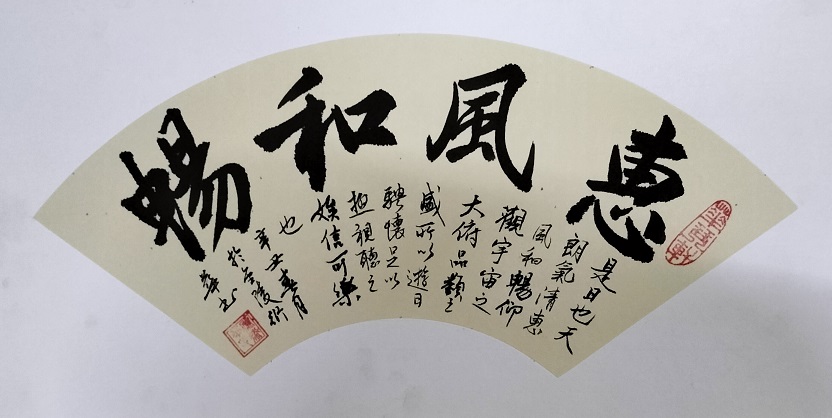 惠風和暢
是日也天
朗氣清惠
風和暢仰
觀宇宙之
大俯品類之
盛所以遊目
騁懷足以
極視聽之
娛信可樂
也
辛丑春月
於金陵衍
華书